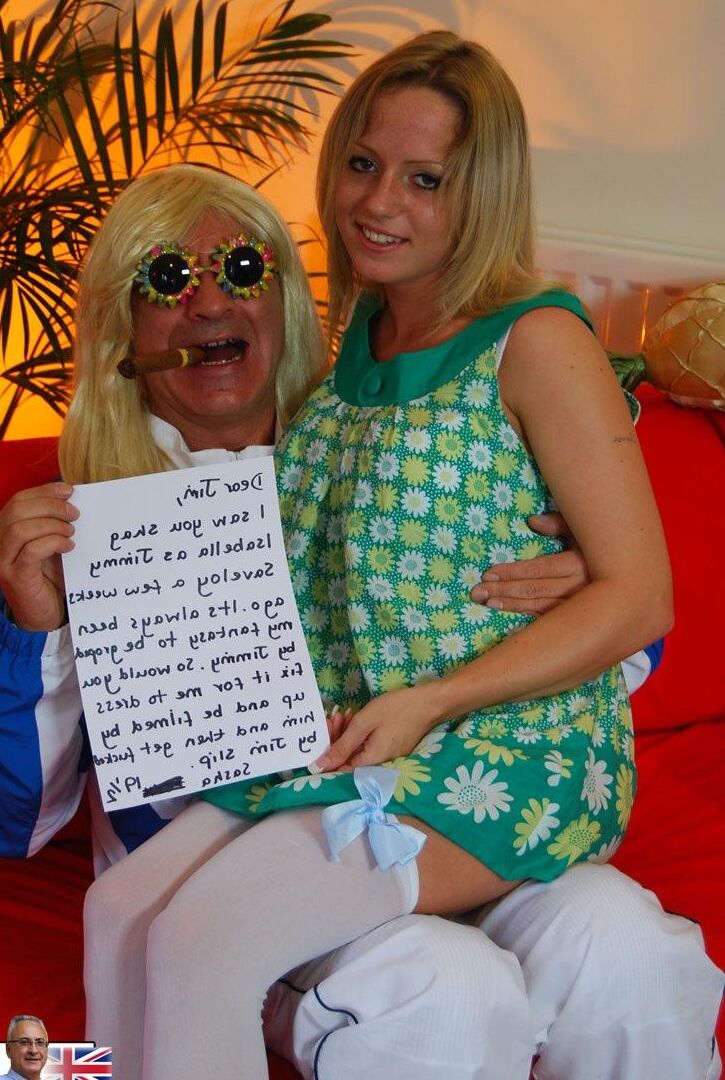 Dear Jim,
I saw you shag
Isabella as Jimmy
Saveloy a few weeks
ago. Its always been
my fantasy to be groped
by Jimmy. So would you
fix it for me to dress
up and be filmed by
him and then get fucked
by Jim Slip.
Sasha 19½